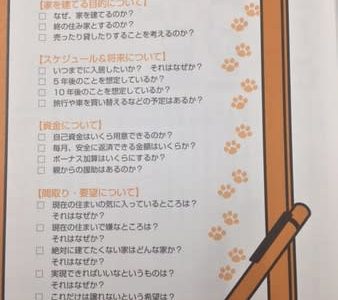 【家を建てる目的について】
□ なぜ、家を建てるのか?
□ 終の住み家とするのか?
□ 売ったり貸したりすることを考えるのか?
【スケジュール&将来について】
□ いつまでに入居したいか? それはなぜか?
□ 5年後のことを想定しているか?
□ 10年後のことを想定しているか?
□ 旅行や車を買い替えるなどの予定はあるか?
【資金について】
□ 自己資金はいくら用意できるのか?
□ 毎月、安全に返済できる金額はいくらか?
□ ボーナス加算はいくらにするか?
□ 親からの援助はあるのか?
【間取り・要望について】
□ 現在の住まいの気に入っているところは?
それはなぜか?
□ 現在の住まいで嫌なところは?
それはなぜか?
□ 絶対に建てたくない家はどんな家か?
それはなぜか?
□ 実現できればいいなというものは?
それはなぜか?
□ これだけは譲れないという希望は?